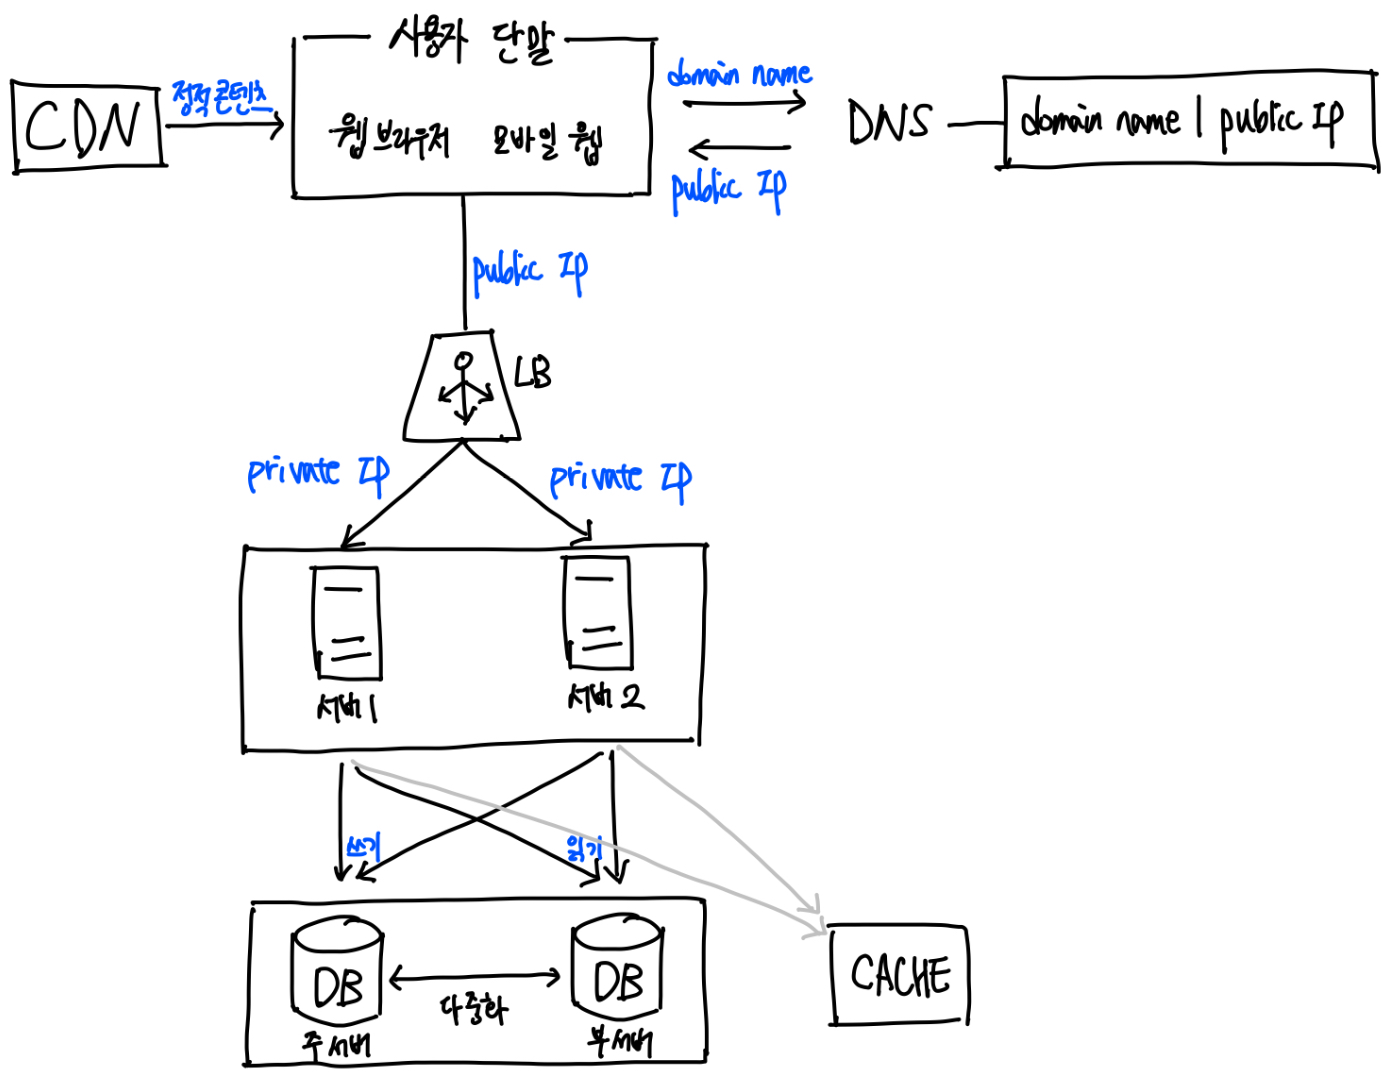 사용자 단말
CDN
정적 콘텐츠
웹 브라우저 모바일 웹
domain name
public IP
DNS
domain name | public IP
public IP
LB
private IP
private IP
서버 1
서버 2
쓰기
읽기
DB
주 서버
다중화
DB
부 서버
CACHE